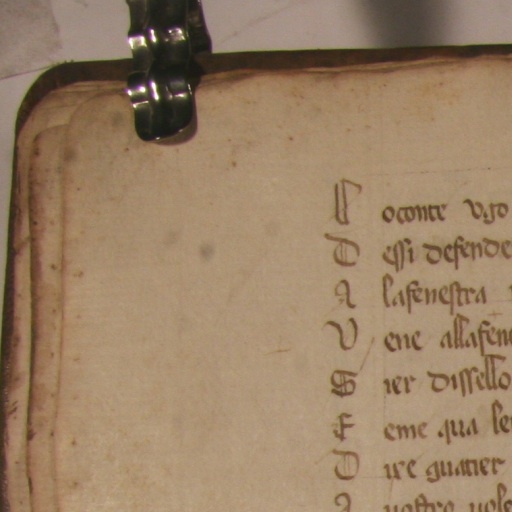 L oconte vgo
D essi defende
A lafenestra
V ene allafen
G ier dissello
E eme qua
D ixe guatier
A uostro uole